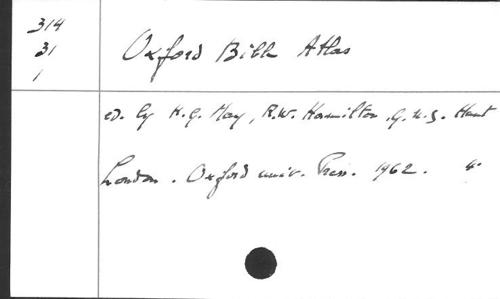 314
31
1
Oxford Bible Atlas
ed. by H.G. May, R.W. Hamilton, G.N.S. Hunt
London. Oxford univ. Press. 1962. 4°